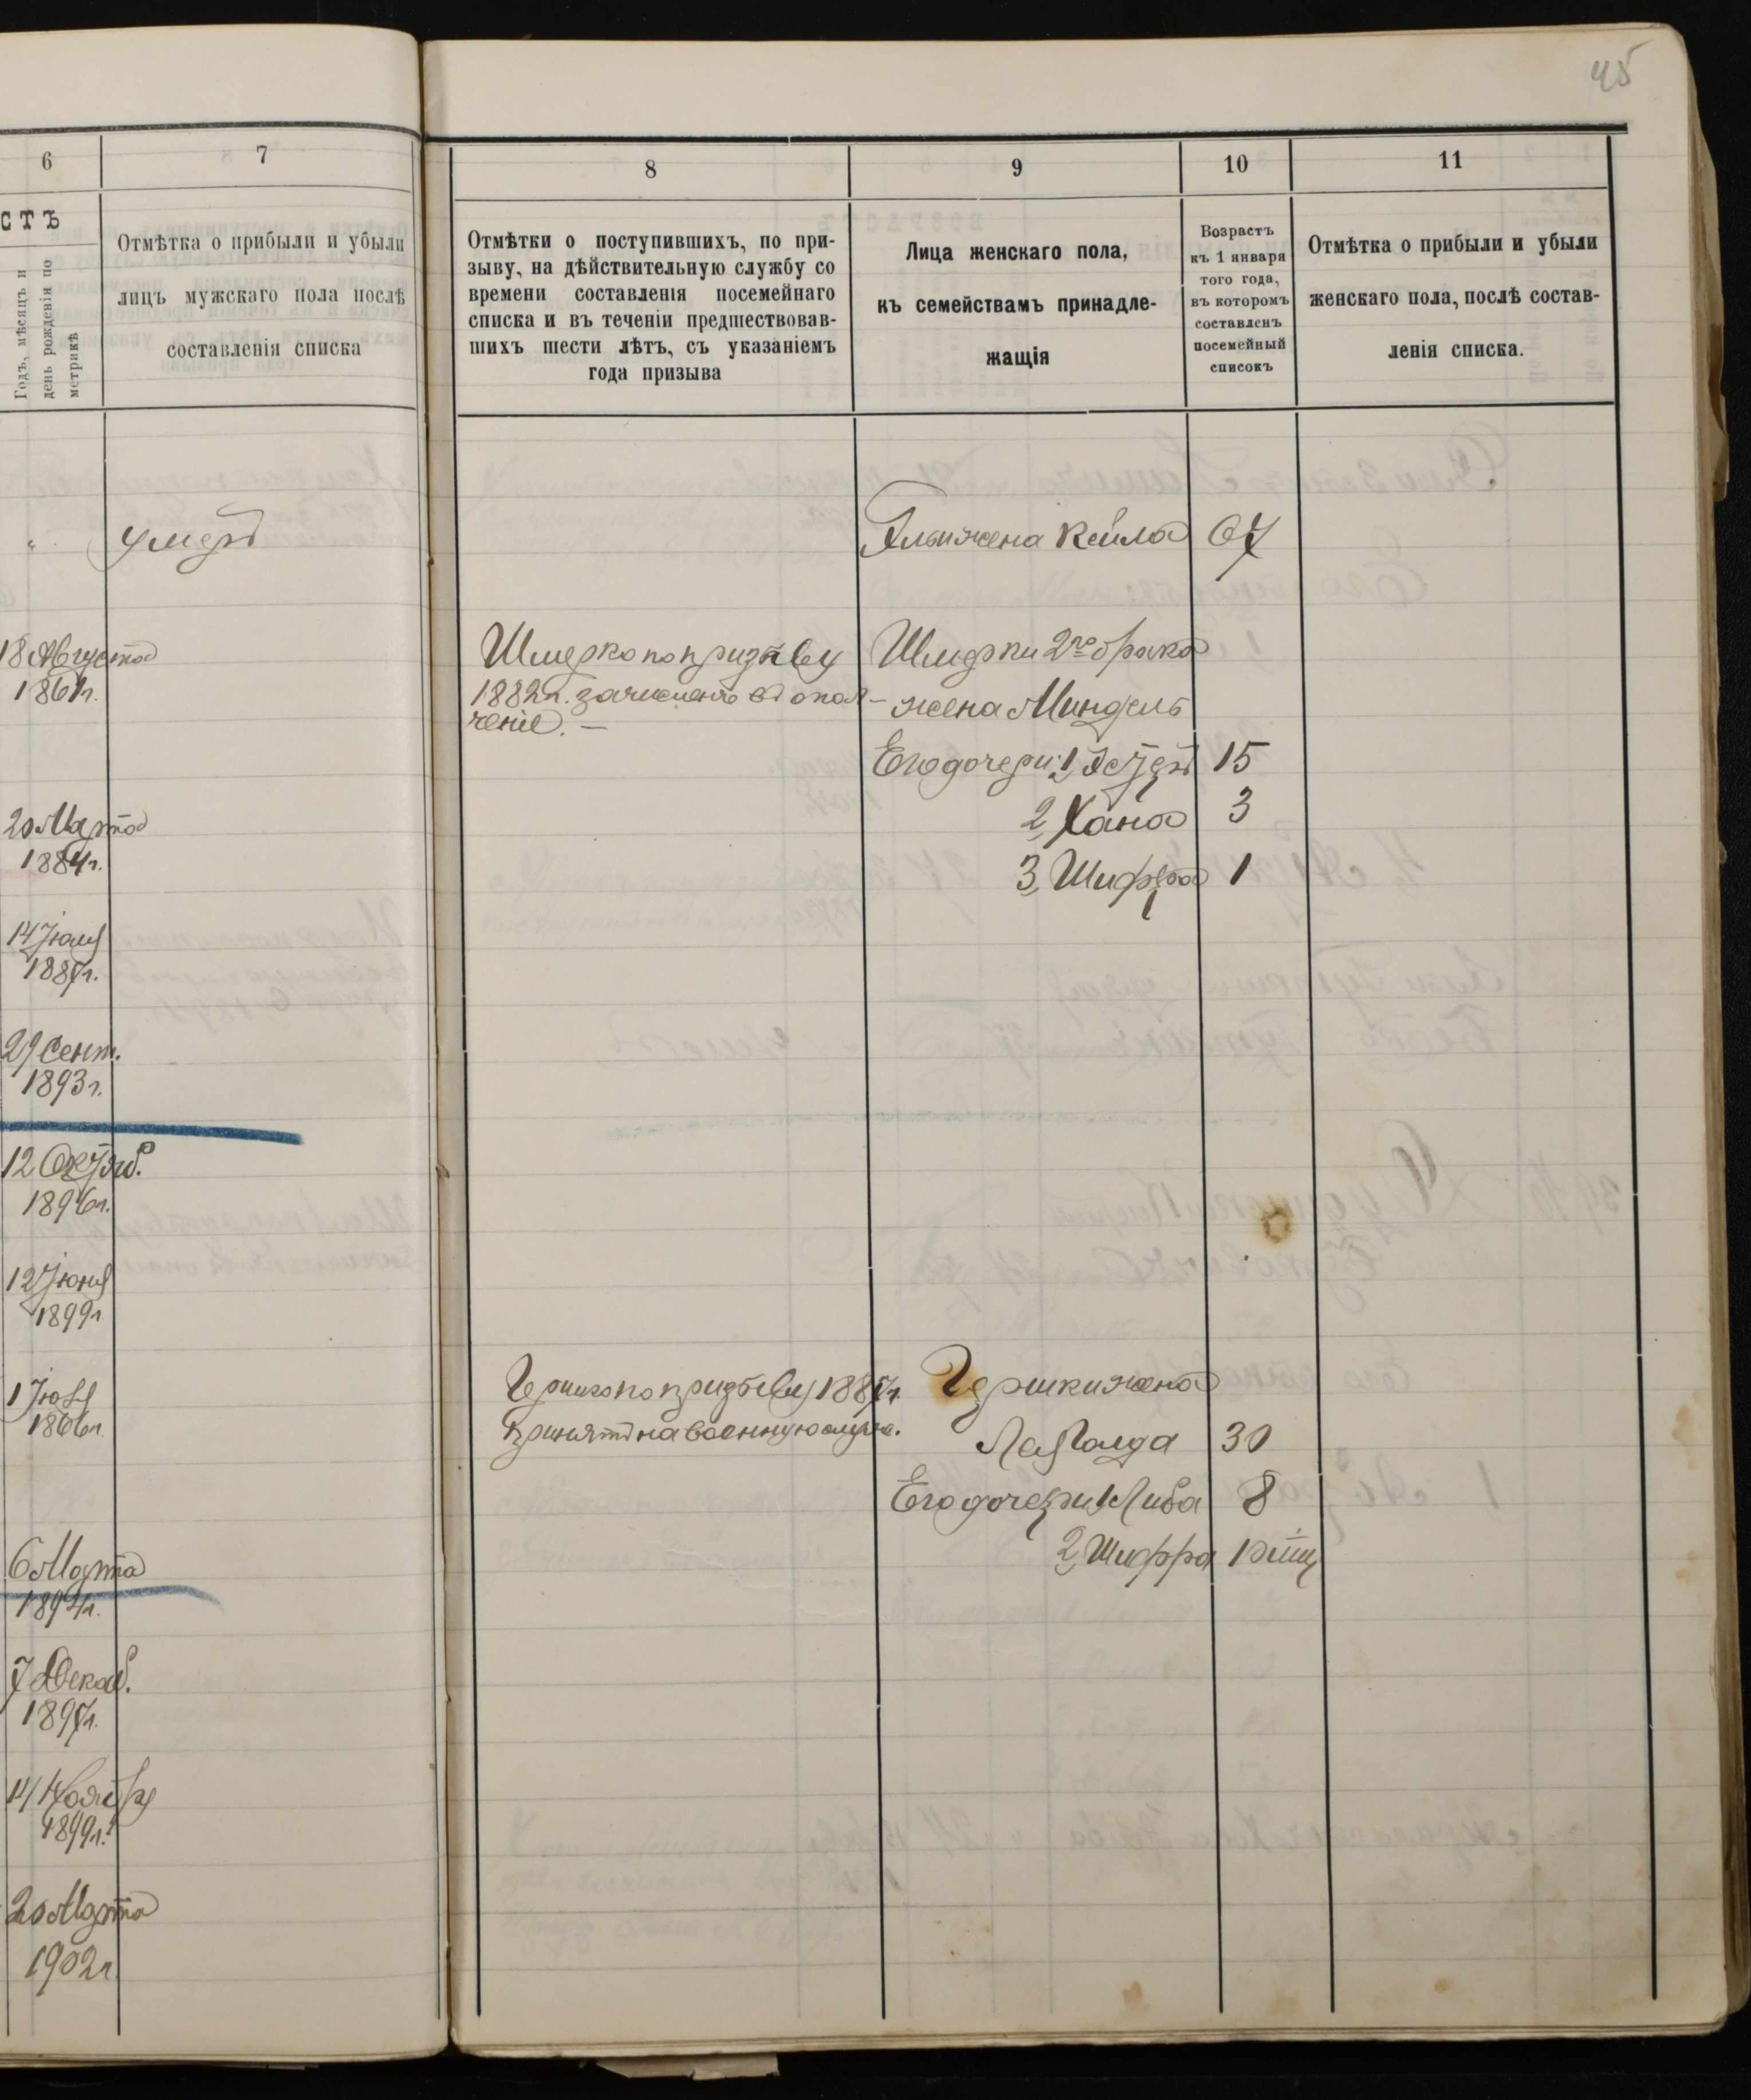 45
6
7
8
9
10
11
СТЪ
Годъ, мѣсяцъ и
день рожденія по
метрикѣ
Отмѣтка о прибыли и убыли
лицъ мужскаго пола послѣ
составленія списка
Отмѣтки о поступившихъ, по при-
зыву, на дѣйствительную службу со
времени составленія посемейнаго
списка и въ теченіи предшествовав-
шихъ шести лѣтъ, съ указаніемъ
года призыва
Лица женскаго пола,
къ семействамъ принадле-
жащія
Возрастъ
къ 1 января
того года,
въ которомъ
составленъ
посемейный
списокъ
Отмѣтка о прибыли и убыли
женскаго пола, послѣ состав-
ленія списка.
умеръ
жена Кейла 67
18 Августа
1861г.
Шмерко по призыву
1882г. зачисленъ въ опол-
ченіе. —
Шмерки 2го брака
жена Миндель
Его дочери: 1, Эстеръ 15
2, Хана 3
3, Шифра 1
20 Марта
1884г.
14 Іюля
1887г.
29 Сент.
1893г.
12 Октяб.
1896г.
12 Іюня
1899г
1 Іюля
1866г
Гершко по призыву 1887г.
принятъ на военную служ.
Гершки жена
Лея Голда 30
Его дочери 1, Либа 8
2, Шифра
6 Марта
1894г.
7 Декаб.
1897г.
14 Ноября
1899г.
20 Марта
1902г